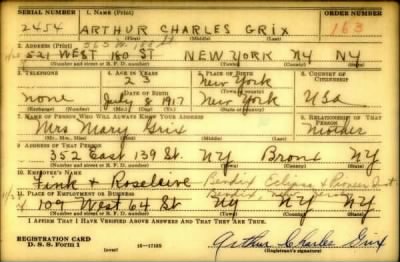 SERIAL NUMBER 1. NAME (Print) ORDER NUMBER
2454 ARTHUR CHARLES GRIX 163
(First) (Middle) (Last)
2. ADDRESS (Print)
521 WEST 180 ST NEW YORK NY NY
(Number and street or R. F. D. number) (Town) (County) (State)
3. TELEPHONE 4. AGE IN YEARS 5. PLACE OF BIRTH 6. COUNTRY OF CITIZENSHIP
23 New York
DATE OF BIRTH (Town or county)
none July 8 1917 New York USa
(Exchange) (Number) (Mo.) (Day) (Yr.) (State or country)
7. NAME OF PERSON WHO WILL ALWAYS KNOW YOUR ADDRESS 8. RELATIONSHIP OF THAT PERSON
Mrs Mary Grix Mother
(Mr., Mrs., Miss) (First) (Middle) (Last)
9. ADDRESS OF THAT PERSON
352 East 139 St. NY Bronx NY
(Number and street or R. F. D. number) (Town) (County) (State)
10. EMPLOYER'S NAME
Fink Roselaive Bendix Eclipse & Pioneer Inst
11. PLACE OF EMPLOYMENT OR BUSINESS Bendix,
109 West 64 St NY NY NY
(Number and street or R. F. D. number) (Town) (County) (State)
I AFFIRM THAT I HAVE VERIFIED ABOVE ANSWERS AND THAT THEY ARE TRUE.
REGISTRATION CARD
D. S. S. Form 1 (over) 16—17105 Arthur Charles Grix
(Registrant's signature)